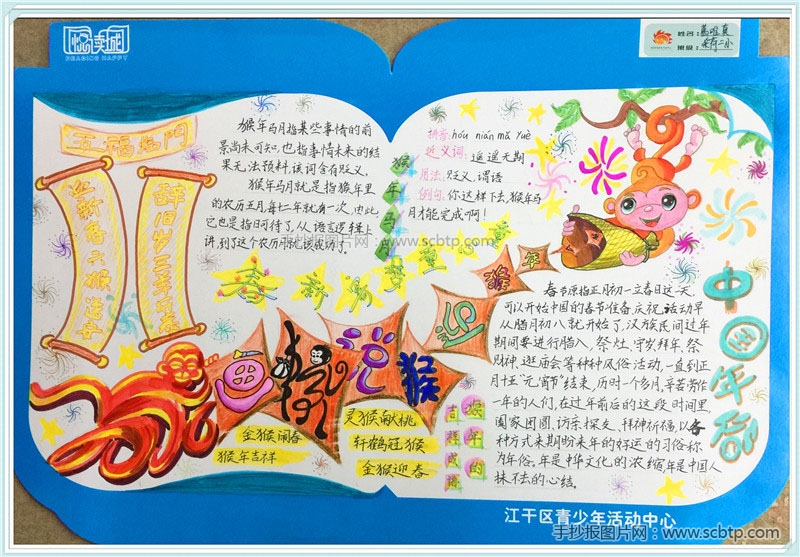 悦读城
READING HAPPY
姓名:
班级:
五福临门
辞旧岁三羊开泰
迎新春六猴送幸
猴年马月指某些事情的前
景尚未可知,也指事情未来的结
果无法预料,该词含有贬义。
猴年马月就是指猴年里
的农历五月,每十二年就有一次,由此
它也是指日可待了,从语言逻辑上
讲,到了这个农历月就该成功了。
猴年马月
拼音:hóu nián mǎ yuè
近义词:遥遥无期
用法:贬义,谓语
例句:你这样下去,猴年马
月才能完成啊!
手抄报图片网:www.scbtp.com
画猴说猴迎猴年
金猴闹春
猴年吉祥
灵猴献桃
轩鹤冠猴
金猴迎春
猴年的
吉祥成语
中国年俗
春节原指正月初一立春日这一天,
可以开始中国的春节准备,庆祝活动早
从腊月初八就开始了,汉族民间过年
期间要进行腊八、祭灶、守岁拜年、祭
财神、逛庙会等种种风俗活动,一直到正
月十五“元宵节”结束,历时一个多月,辛苦劳作
一年的人们,在过年前后的这段时间里,
阖家团圆,访亲探友,拜神祈福,以各
种方式来期盼来年的好运的习俗称
为年俗,年是中华文化的浓缩年是中国人
抹不去的心结。
江干区青少年活动中心
手抄报图片网:www.scbtp.com